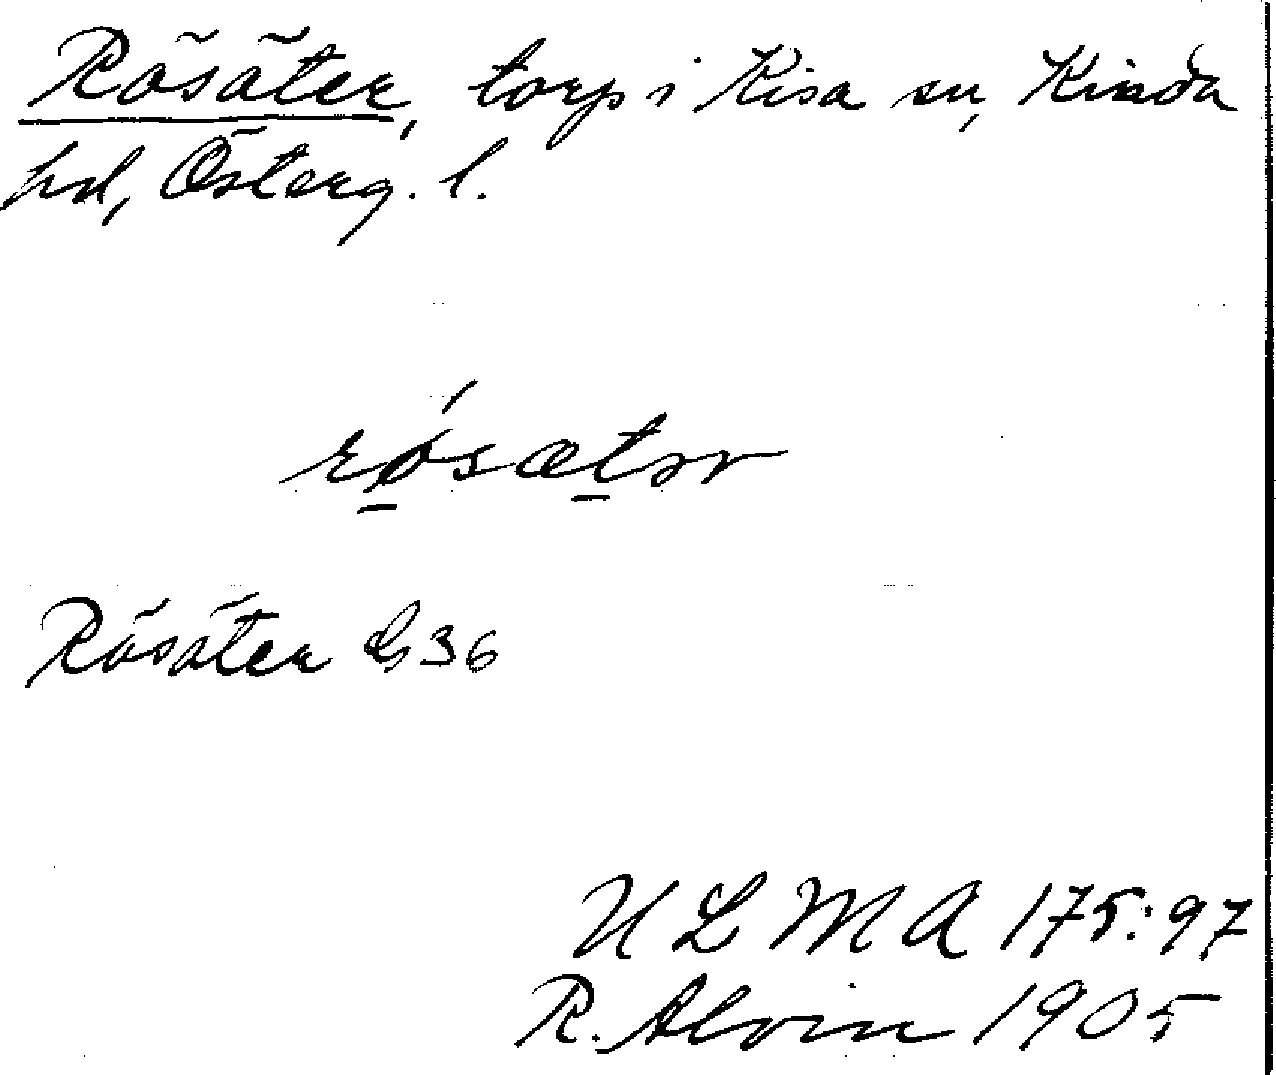 Rösäter, torp i Kisa sn, Kinda
hd, Österg. l.
rø̱sætər
Rösäter G 36
ULMA 175:97
R. Alvin 1905